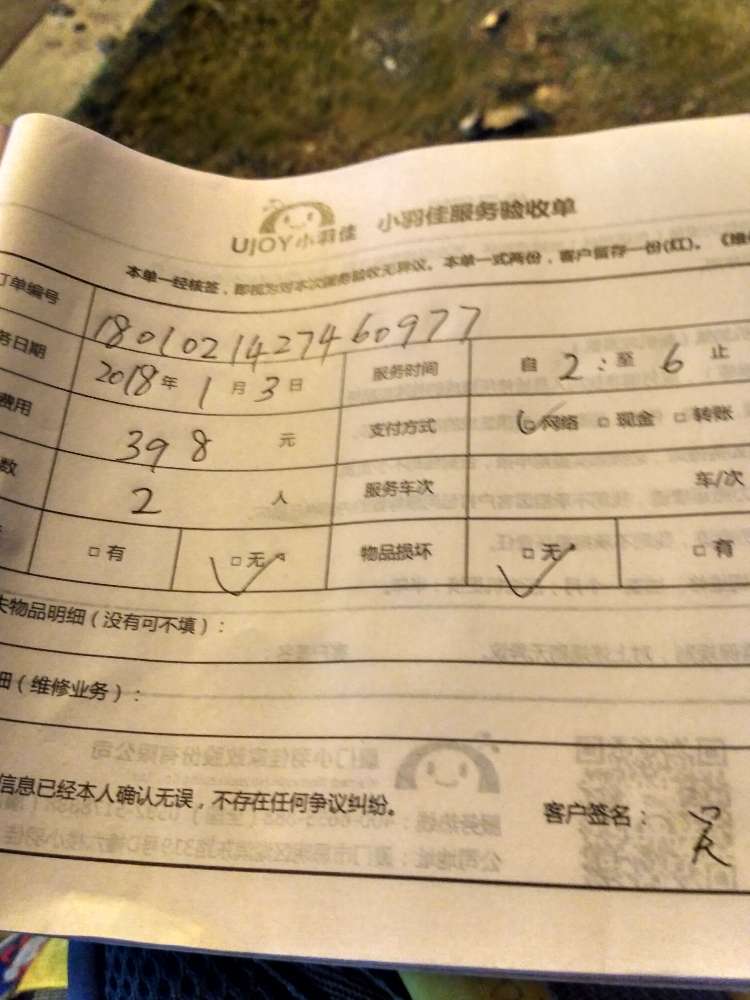 UJOY小羽佳 小羽佳服务验收单
本单一经核签，即视为对本次服务验收无异议。本单一式两份，客户留存一份(红)。《维
订单编号 180102142746097 7
务日期 2018年1月3日 服务时间 自2:至6止
费用 398元 支付方式 □网络 □现金 □转账
数 2人 服务车次 车/次
□有 □无 物品损坏 □无 □有
失物品明细（没有可不填）：
细（维修业务）：
信息已经本人确认无误，不存在任何争议纠纷。 客户签名：